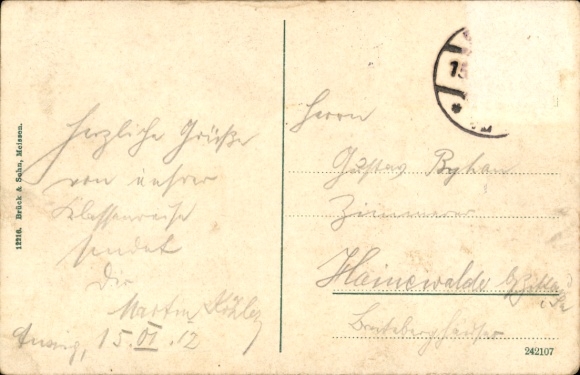 12216. Brück & Sohn, Meissen.
Herzliche Grüße
von unsrer
Klassenreise
sendet
Dir
Martin Köhler
15. VI. 12
Herrn
Gustav
Zimmerer
Hainewalde
15
242107